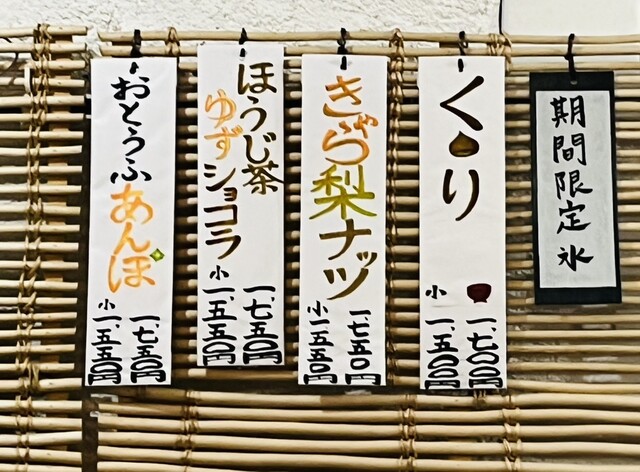 期間限定氷
くり
一、七〇〇円
小一、五〇〇円
きゃら梨ナッツ
一、七五〇円
小一、五五〇円
ほうじ茶
ゆずショコラ
一、七五〇円
小一、五五〇円
おとうふ
あんぽ
一、七五〇円
小一、五五〇円